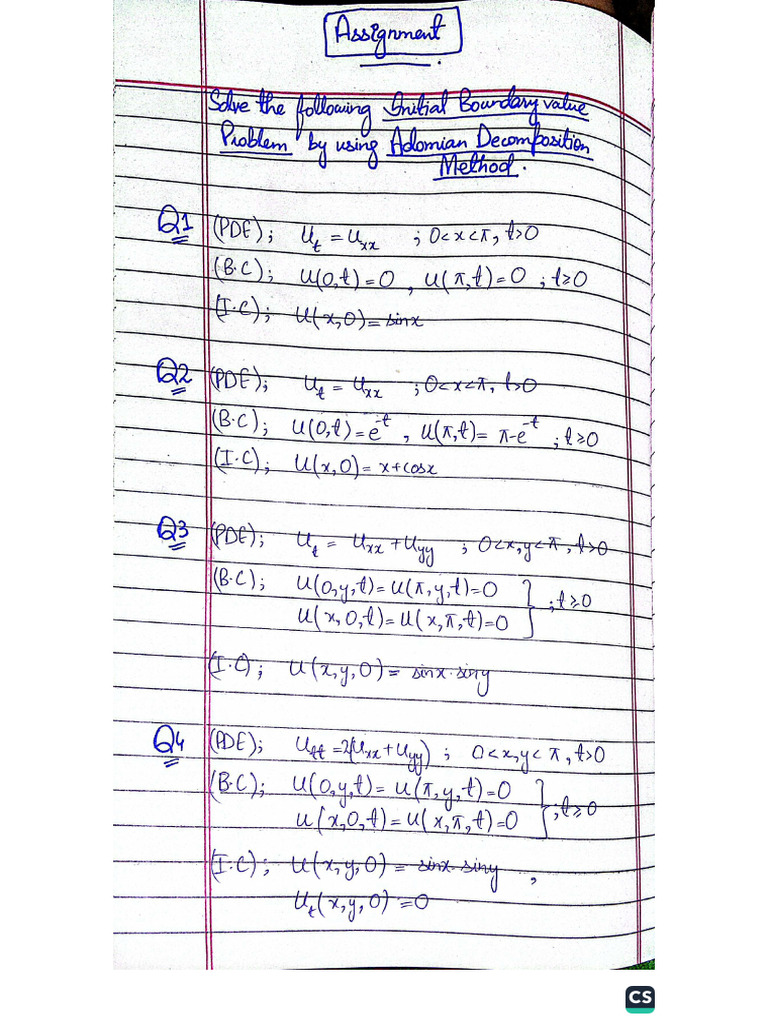 Assignment
Solve the following Initial Boundary value
Problem by using Adomian Decomposition
Method.
Q1 (PDE); u_t = u_xx ; 0<x<π, t>0
(B.C); u(0,t)=0 , u(π,t)=0 ; t≥0
(I.C); u(x,0)=sinx
Q2 (PDE); u_t = u_xx ; 0<x<π, t>0
(B.C); u(0,t)=e^-t , u(π,t)= π-e^-t ; t≥0
(I.C); u(x,0)= x+cosx
Q3 (PDE); u_t = u_xx + u_yy ; 0<x,y<π, t>0
(B.C); u(0,y,t)=u(π,y,t)=0
u(x,0,t)=u(x,π,t)=0 } ; t≥0
(I.C); u(x,y,0)= sinx·siny
Q4 (PDE); u_tt=2(u_xx+u_yy) ; 0<x,y<π, t>0
(B.C); u(0,y,t)= u(π,y,t)=0
u(x,0,t)=u(x,π,t)=0 } ; t≥0
(I.C); u(x,y,0)= sinx·siny ,
u_t(x,y,0)=0
CS